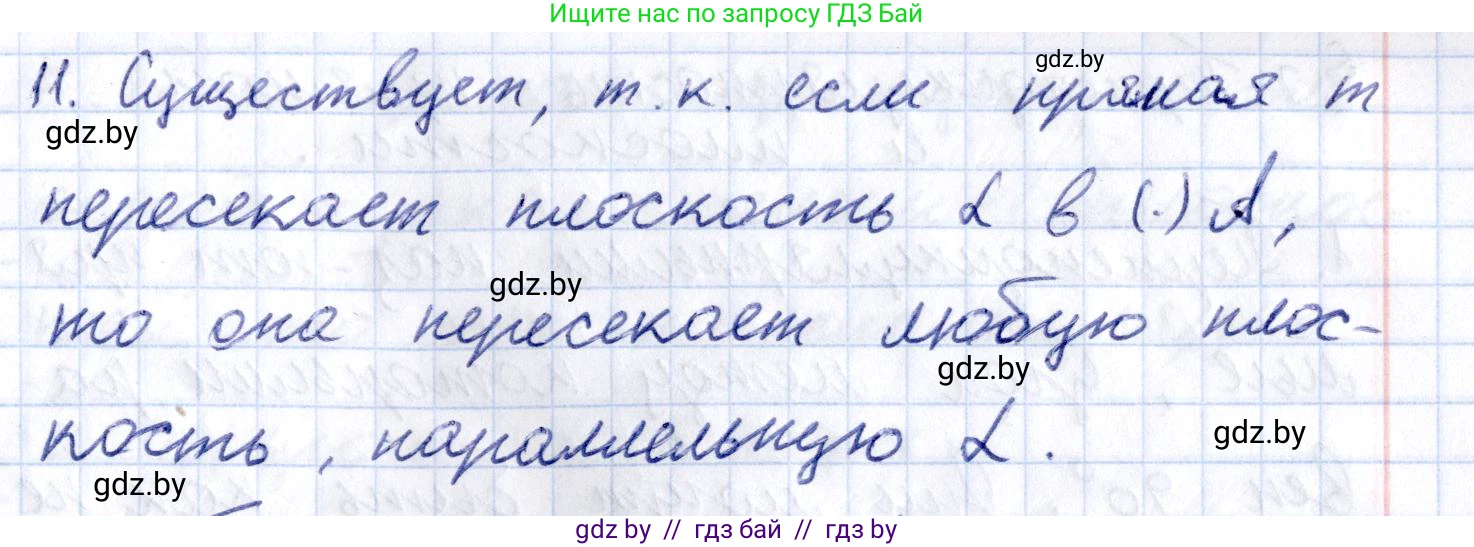 Ищите нас по запросу ГДЗ Бай
gdz.by
11. Существует, т.к. если прямая m
gdz.by
пересекает плоскость α в (·) A,
gdz.by
то она пересекает любую плос-
gdz.by
кость, параллельную α.
gdz.by
gdz.by
gdz.by // гдз бай // гдз by